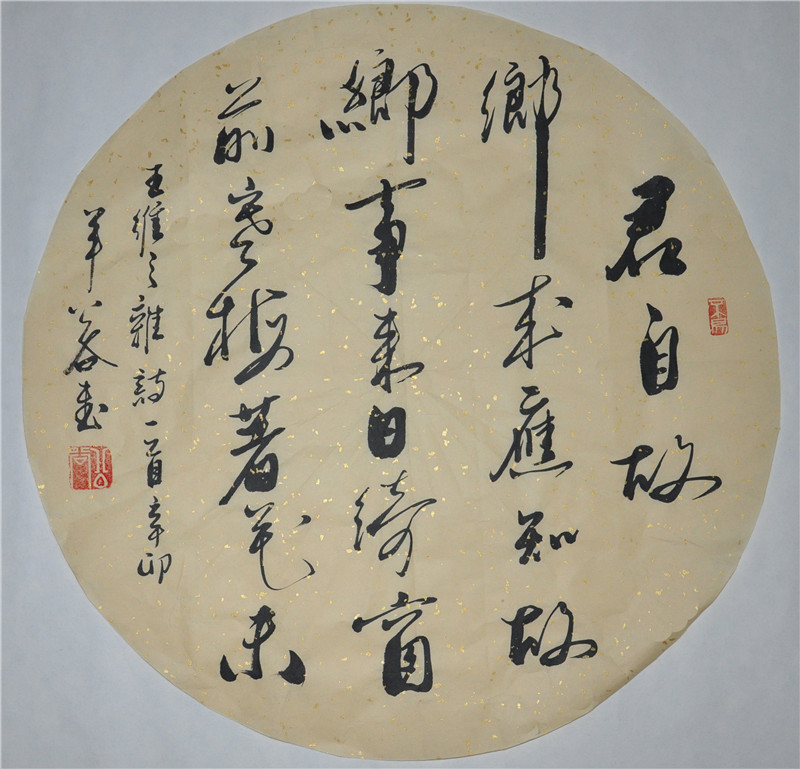 君自故
鄉来應知故
鄉事来日綺窗
前寒梅著花未
王維之雜詩一首辛卯
年公谷書